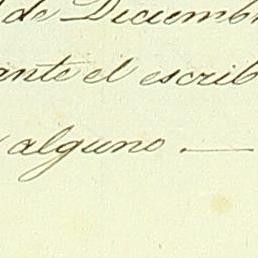 de Diciemb
ante el escrib
alguno . —